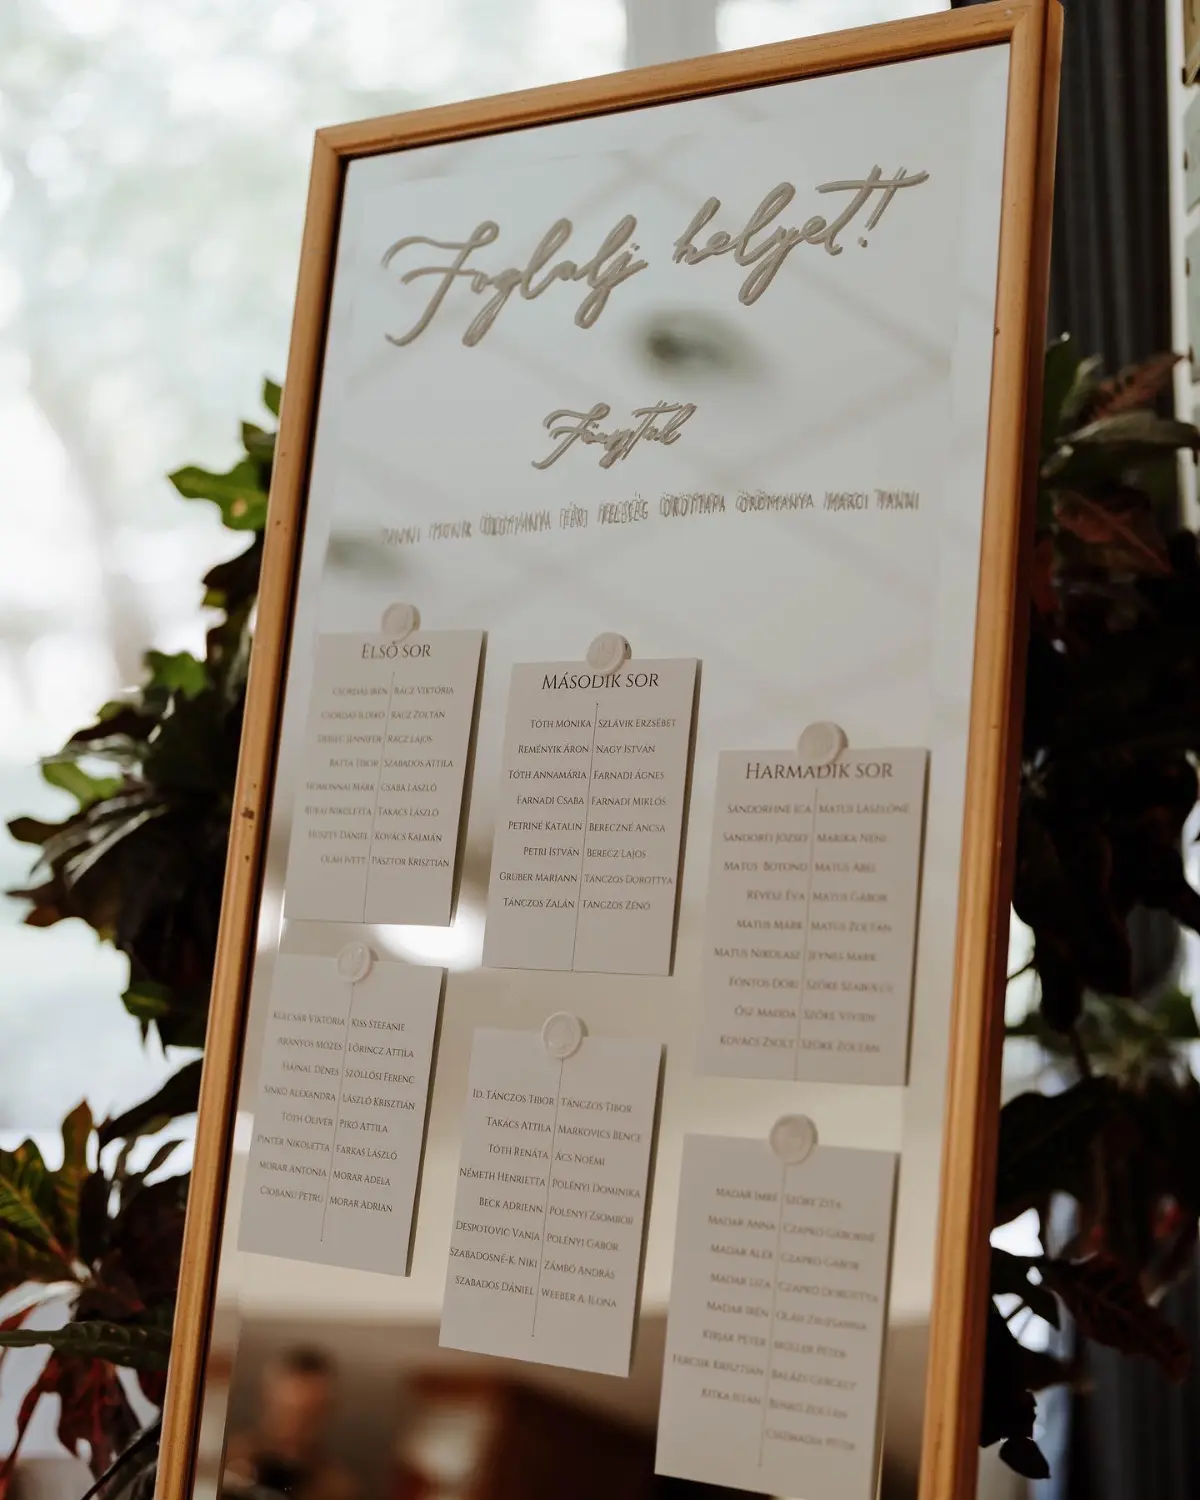 Foglalj helyet!
Főasztal
FÉRJ FELESÉG ÖRÖMAPA ÖRÖMANYA MARCI FANNI
ELSŐ SOR
CSORDÁS IRÉN RÁCZ VIKTÓRIA
CSORDÁS ILDIKÓ RÁCZ ZOLTÁN
JENNIFER RÁCZ LAJOS
BATTA TIBOR SZABADOS ATTILA
HOMONNAI MÁRK CSABA LÁSZLÓ
NIKOLETTA TAKÁCS LÁSZLÓ
DÁNIEL KOVÁCS KÁLMÁN
OLÁH IVETT PÁSZTOR KRISZTIÁN
KULCSÁR VIKTÓRIA KISS STEFÁNIE
ARANYOS MÓZES LŐRINCZ ATTILA
HAJNAL DÉNES SZÖLLŐSI FERENC
SINKÓ ALEXANDRA LÁSZLÓ KRISZTIÁN
TÓTH OLIVÉR PIKÓ ATTILA
PINTÉR NIKOLETTA FARKAS LÁSZLÓ
MORAR ANTONIA MORAR ADELA
CIOBANU PETRU MORAR ADRIAN
MÁSODIK SOR
TÓTH MÓNIKA SZLÁVIK ERZSÉBET
REMÉNYIK ÁRON NAGY ISTVÁN
TÓTH ANNAMÁRIA FARNADI ÁGNES
FARNADI CSABA FARNADI MIKLÓS
PETRINÉ KATALIN BERECZNÉ ANCSA
PETRI ISTVÁN BERECZ LAJOS
GRUBER MARIANN TÁNCZOS DOROTTYA
TÁNCZOS ZALÁN TÁNCZOS ZENÓ
ID. TÁNCZOS TIBOR TÁNCZOS TIBOR
TAKÁCS ATTILA MARKOVICS BENCE
TÓTH RENÁTA ÁCS NOÉMI
NÉMETH HENRIETTA POLÉNYI DOMINIKA
BECK ADRIENN POLÉNYI ZSOMBOR
DESPOTOVIC VANJA POLÉNYI GÁBOR
SZABADOSNÉ-K. NIKI ZÁMBÓ ANDRÁS
SZABADOS DÁNIEL WEEBER A. ILONA
HARMADIK SOR
SÁNDORNÉ ICA MATUS LÁSZLÓNÉ
SÁNDORFI JÓZSEF MARIKA NÉNI
MATUS BOTOND MATUS ÁBEL
RÉVÉSZ ÉVA MATUS GÁBOR
MATUS MÁRK MATUS ZOLTÁN
MATUS NIKOLASZ MÁRK
FONTOS DÓRI SZŐKE SZABOLCS
ŐSZ MAGDA SZŐKE VIVIEN
KOVÁCS ZSOLT SZŐKE ZOLTÁN
MADÁR IMRE SZŐKE ZITA
MADÁR ANNA CZAPKÓ GÁBORNÉ
MADÁR ALEX CZAPKÓ GÁBOR
MADÁR LUCA CZAPKÓ DOROTTYA
MADÁR IRÉN OLÁH ZSUZSANNA
KIRJÁK PÉTER MÜLLER PÉTER
FERCSIK KRISZTIÁN BALÁZS GERGELY
BENKŐ ZOLTÁN
CSIZMADIA PÉTER